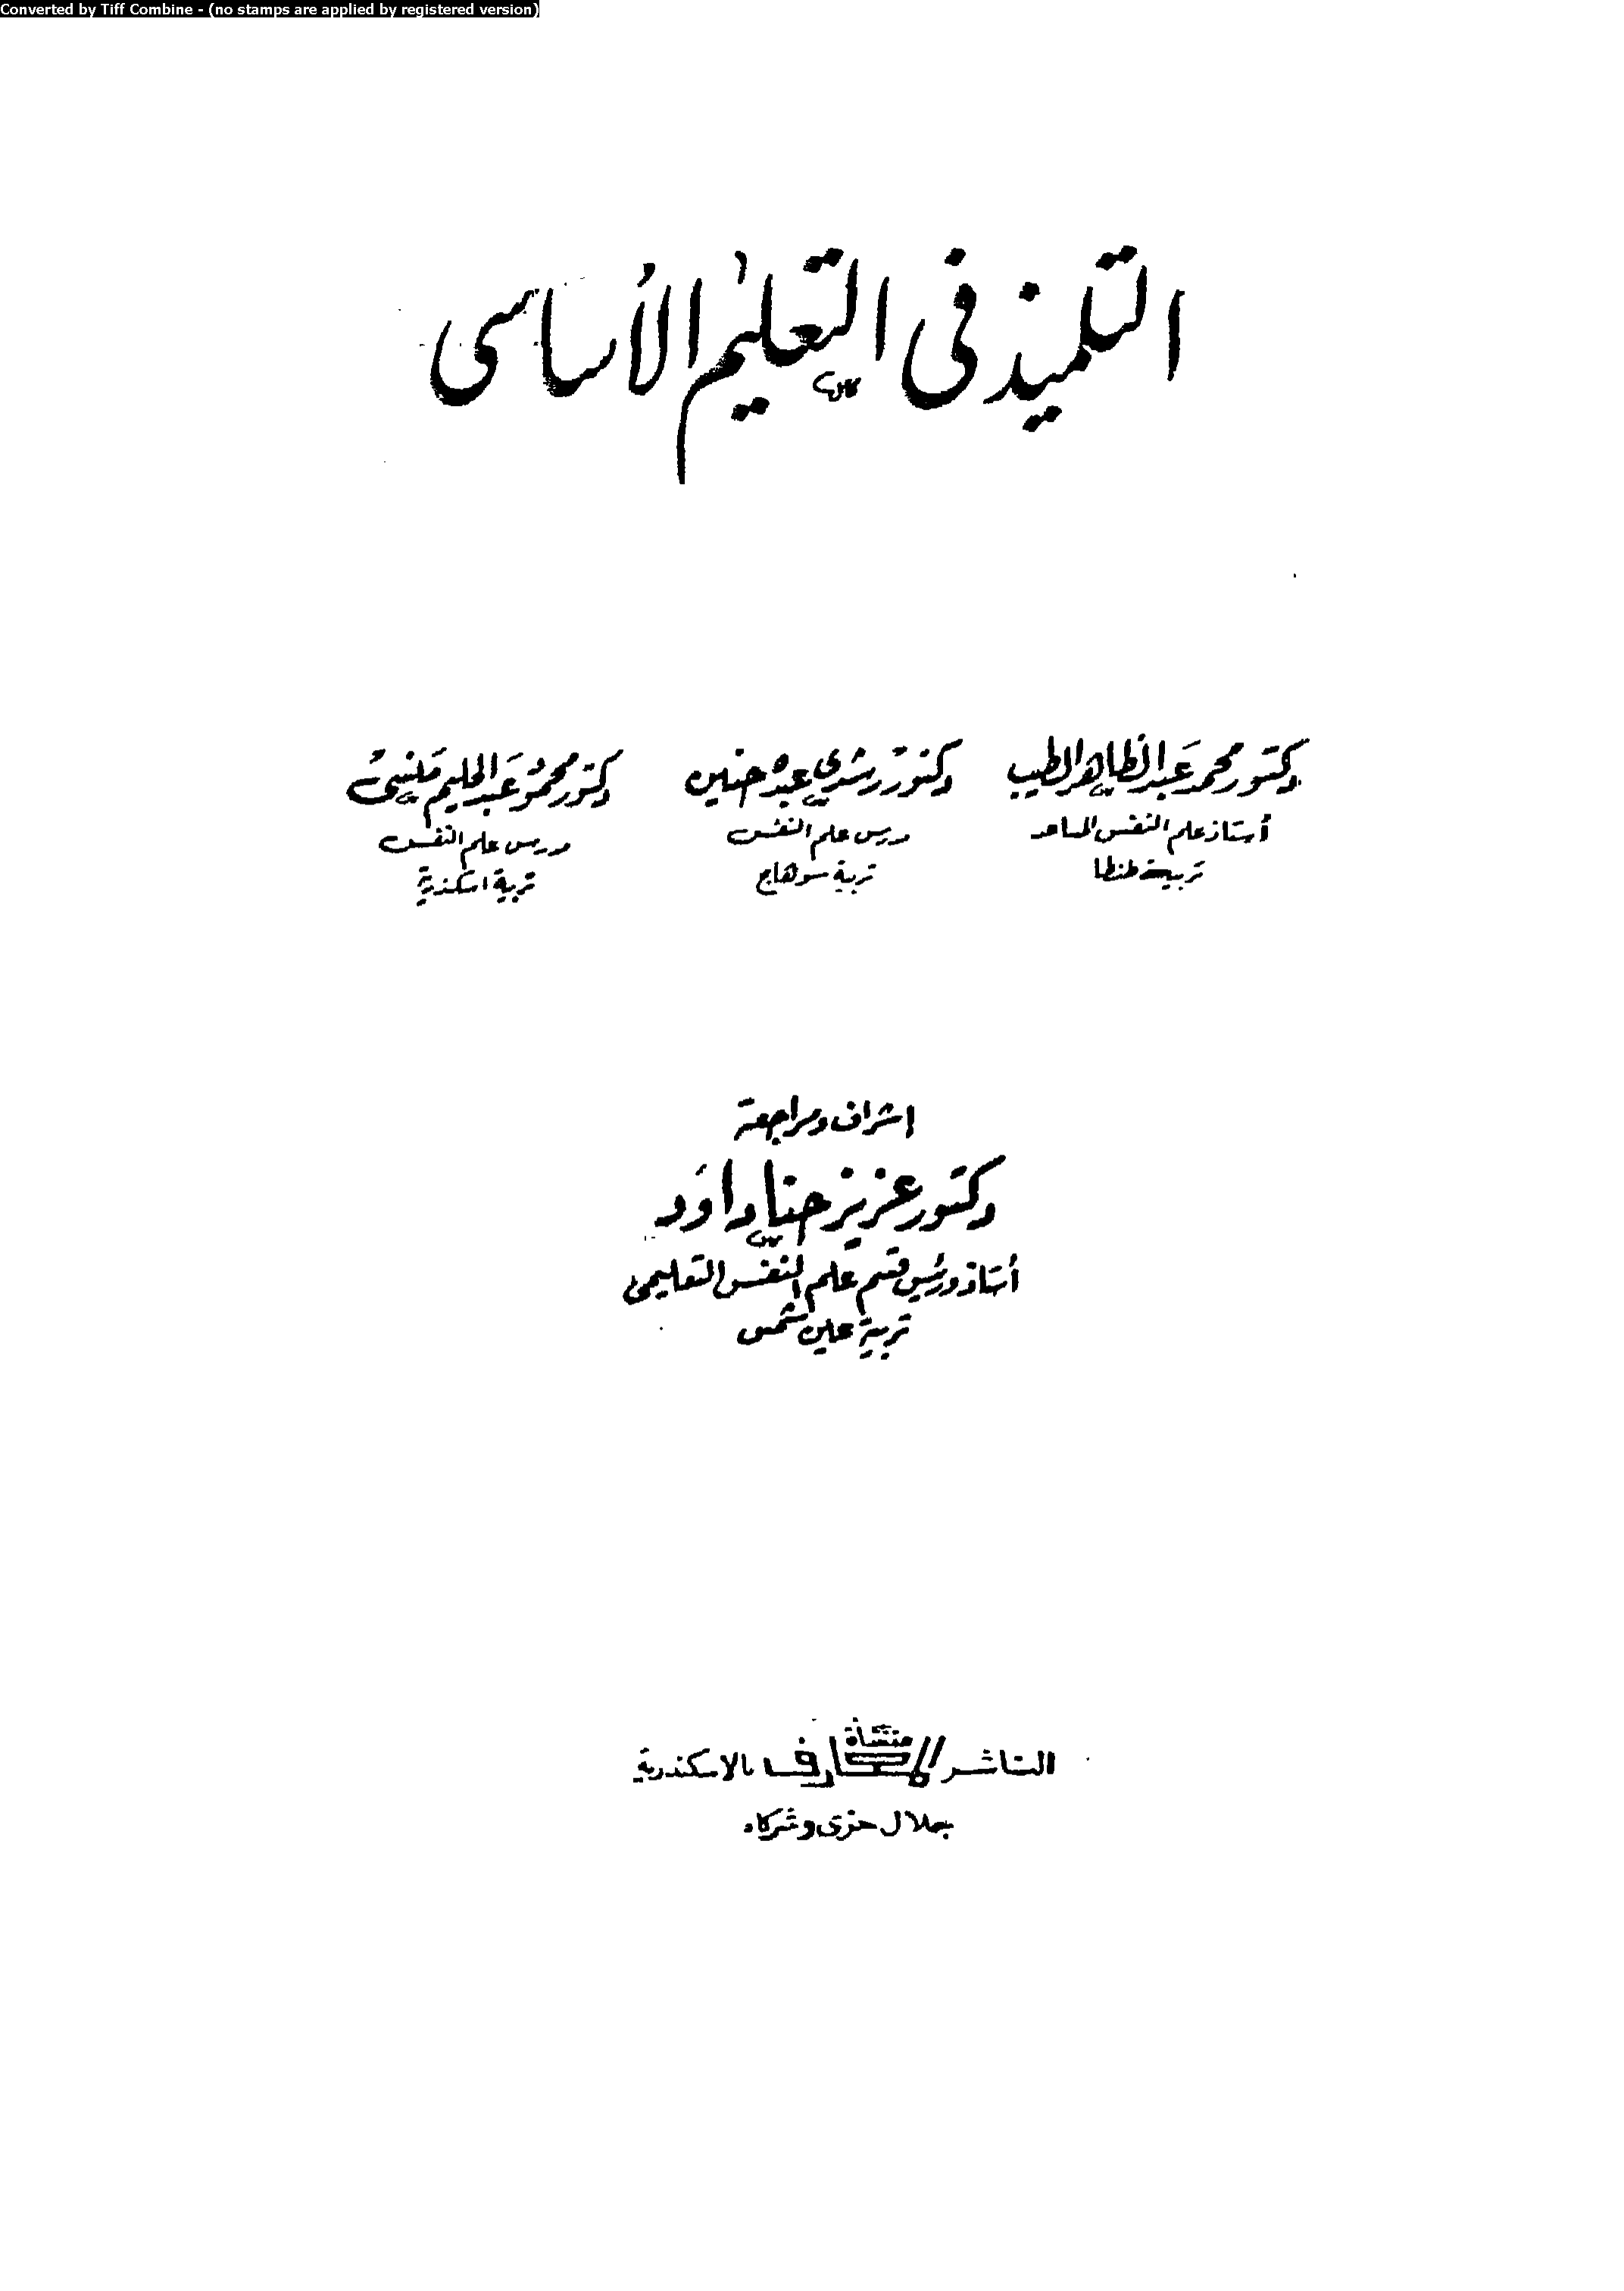 Converted by Tiff Combine - (no stamps are applied by registered version)
التلميذ فى التعليم الأساسى
دكتور محمد عبد الظاهر الطيب
أستاذ علم النفس المساعد
تربية طنطا
دكتور رشدى عبده حنين
مدرس علم النفس
تربية سوهاج
دكتور محمود عبد الحليم منسى
مدرس علم النفس
تربية اسكندرية
اشراف ومراجعة
دكتور عزيز حنا داود
أستاذ ورئيس قسم علم النفس التعليمى
تربية عين شمس
الناشر منشأة المعارف بالاسكندرية
جلال حزى وشركاه